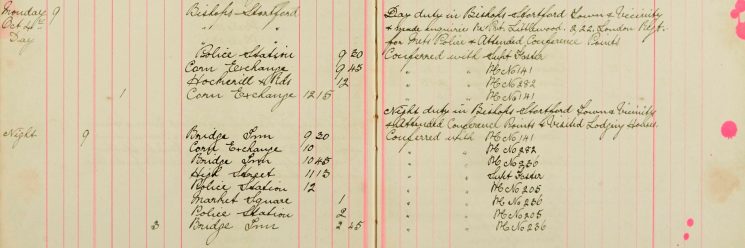 Monday 9 Bishops-Stortford Day duty in Bishops Stortford Town & Vicinity
Oct 4th " " & made enquiries Littlewood. 3.22. London Regt.
Day " for Mets Police & Attended Conference Points
Police Station 9 30 Conferred with Supt Foster
Corn Exchange 9 45 " " PC No 141
Hockerill X Rds 12 " " PC No 282
1 Corn Exchange 12 15 " " PC No 141
Night duty in Bishops-Stortford Town & Vicinity
& Attended Conference Points & Visited Lodging Houses.
Night 9 Bridge Inn 9 30 Conferred with PC No 141
Corn Exchange 10 " " PC No 282
Bridge Inn 10 45 " " PC No 236
High Street 11 15 " " Supt Foster
Police Station 12 " " PC No 205
Market Square 1 " " PC No 236
Police Station 2 " " PC No 205
3 Bridge Inn 2 45 " " PC No 236